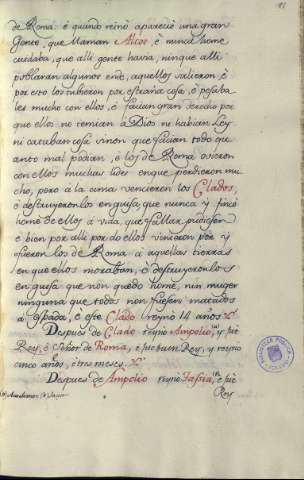 de Roma: é quando reinó apareció una gran
Gente, que llaman Alcos é nunca home
cuidaba, que alli gente havia, ninque alli
poblaran algunos ende, aquellos salieron, é
por esto los tubieron por estraña cosa, é pesaba
les mucho con ellos, é facian gran derecho por
que ellos no temian á Dios ni habian Ley
ni cataban cosa sinon que facian todo qu
anto mal podian, é los de Roma ovieron
con ellos muchas lides en que perdieron mu
cho, pero á la cima vencieron los Clados,
é destruyeronlos en guisa, que nunca y fincó
home de ellos á vida, que fallar pudiesen
é bien por alli por do ellos vinieron por y
fueron los de Roma á aquellas tierras
en que ellos moraban, é destruyeronlos
en guisa que non quedó home, nin muger
ninguna que todos non fuesen matados
á espada, é este Clado reynó 14 años
Despues de Clado reynó Ampelio, y fué
Rey, é Señor de Roma, é fue buen Rey, y reynó
cinco años, é tres meses.
Despues de Ampelio reynó Tassia, é fué
Rey